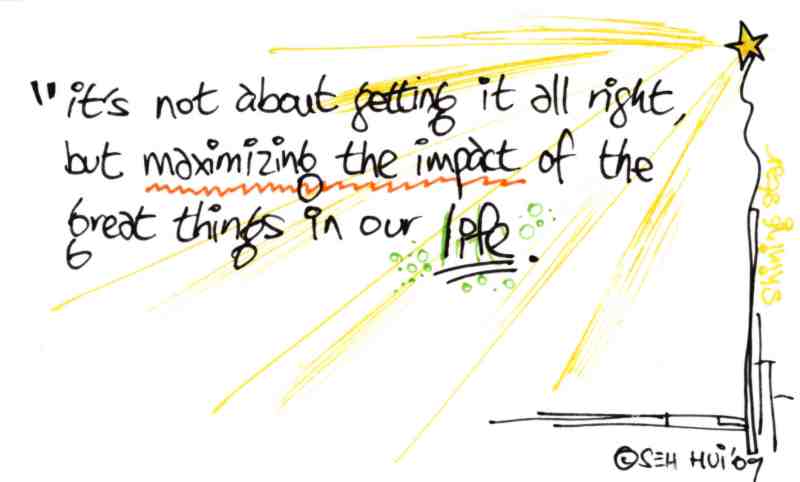 "it's not about getting it all right,
but maximizing the impact of the
great things in our life.
shining
©SEH HUI '09